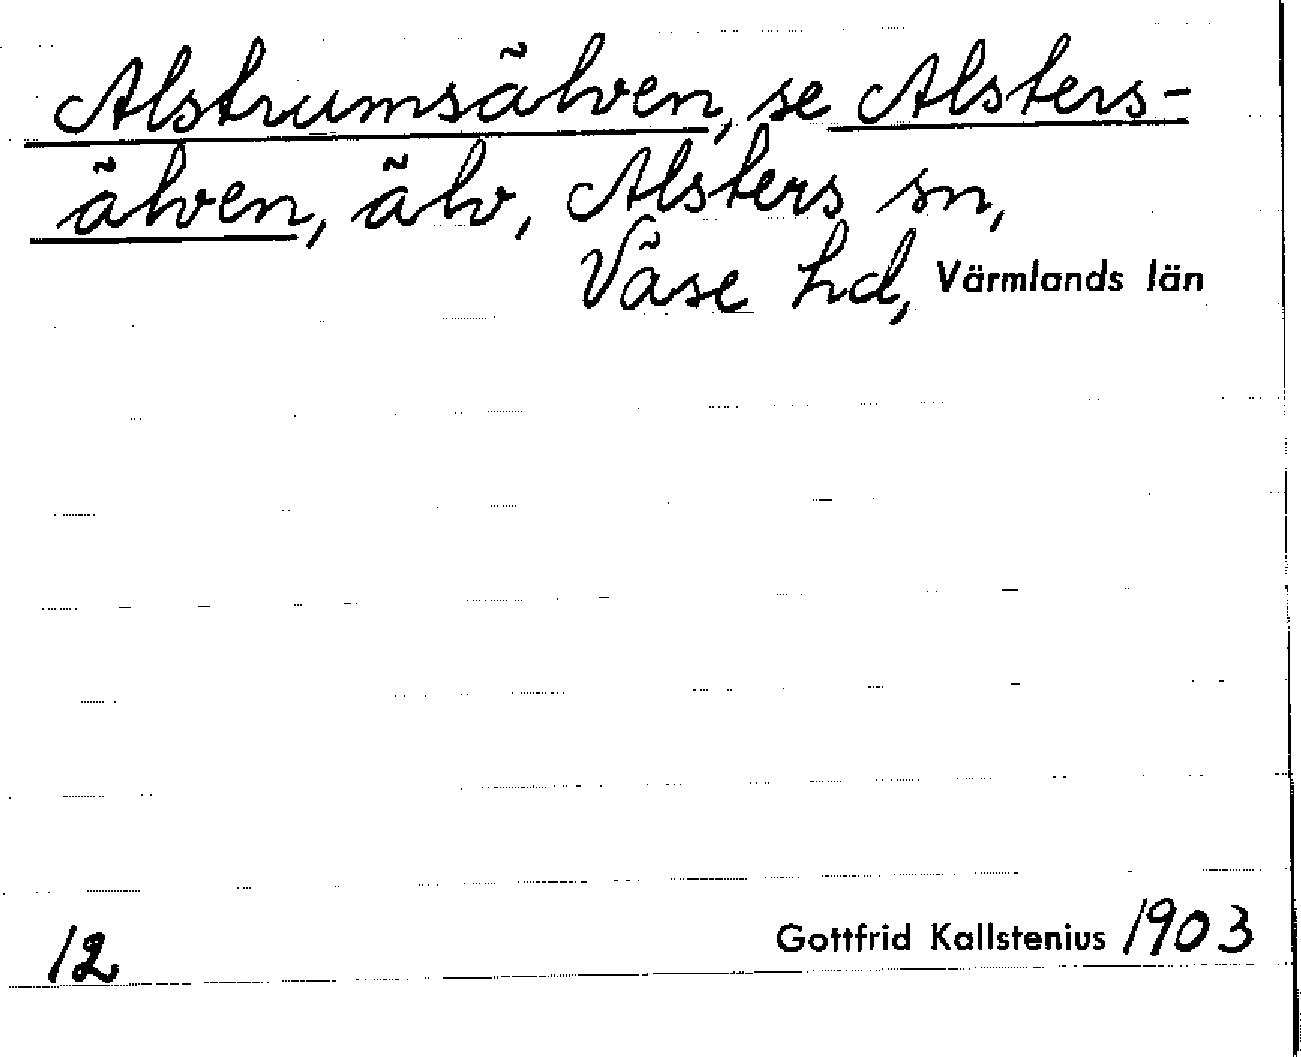 Alstrumsälven, se Alsters-
älven, älv, Alsters sn,
Väse hd, Värmlands län
12 Gottfrid Kallstenius 1903